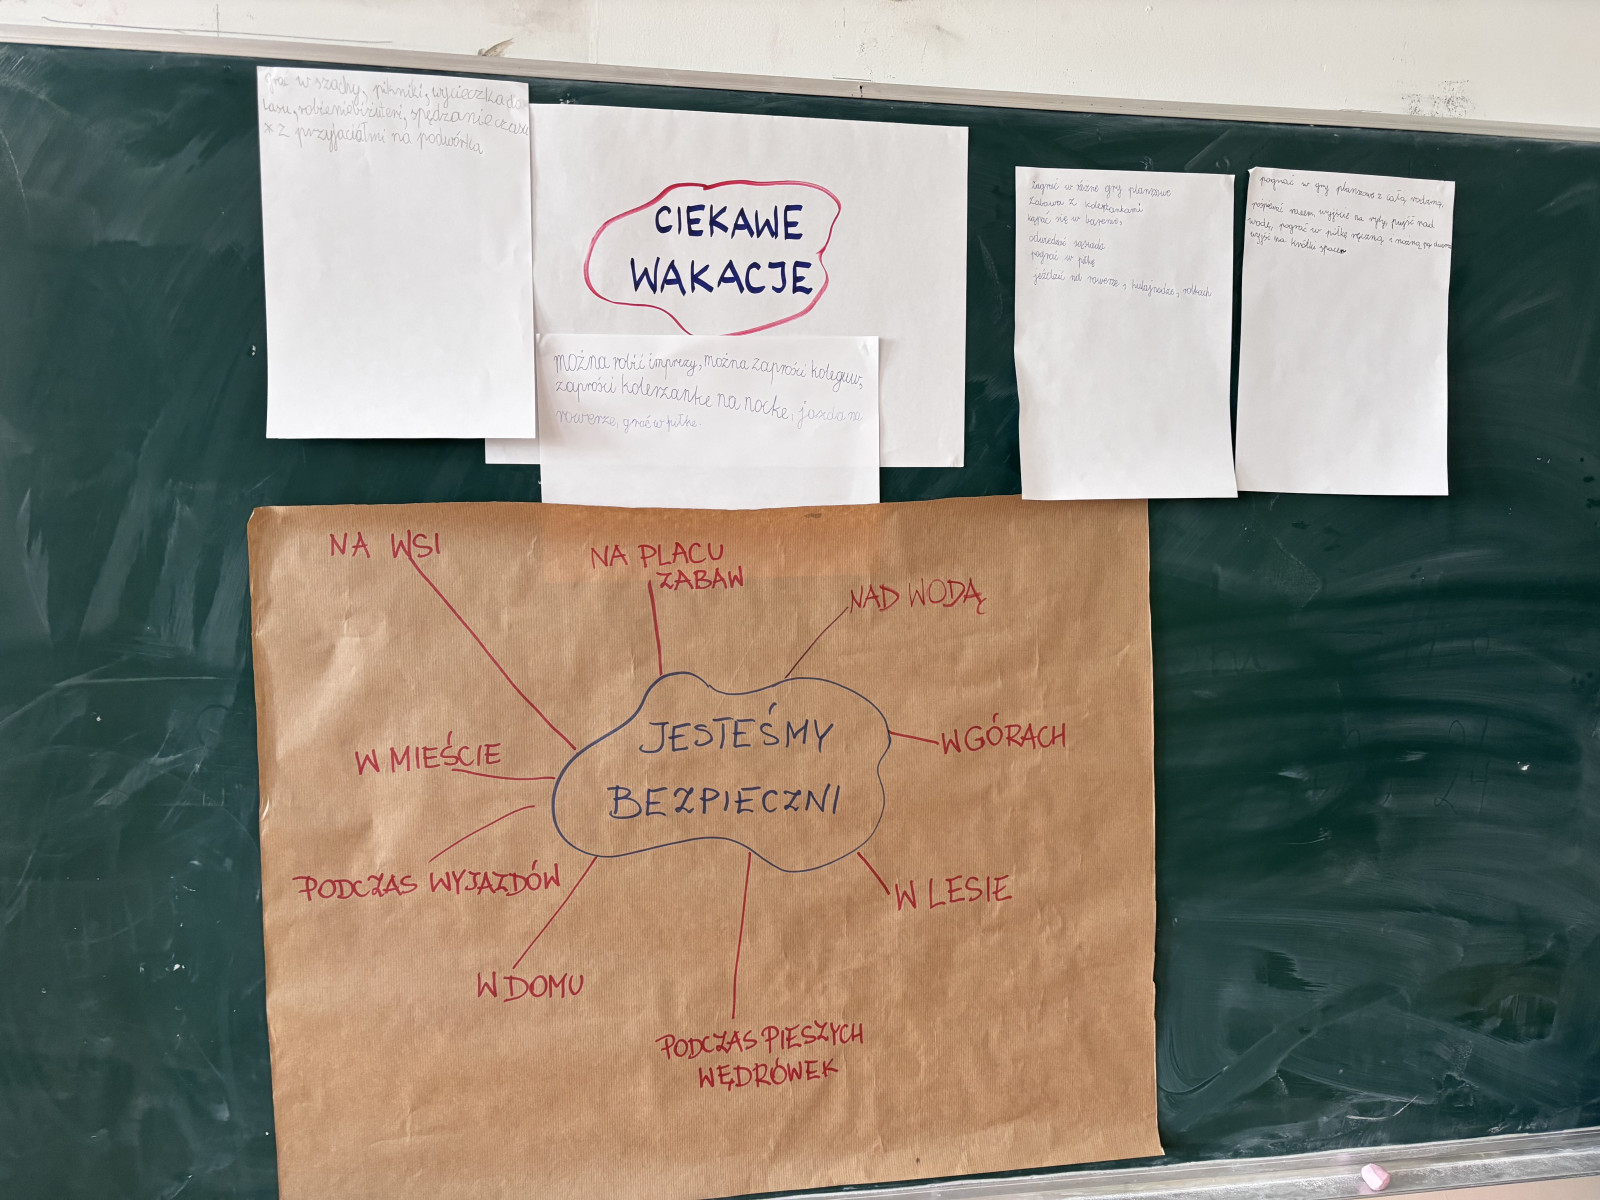 grać w szachy, pikniki, wycieczka do
lasu, robienie biżuteri, spędzanie czasu
* z przyjaciółmi na podwórku
CIEKAWE
WAKACJE
można robić imprezy, można zaprosić koleguw,
zaprosić kolerzanke na nocke, jazda na
rowerze, grać w piłke.
zagrać w różne gry planszowe
Zabawa z koleżankami
kąpać się w basenie,
odwiedzać sąsiada
pograć w piłkę
jeździć na rowerze, hulajnodze, rolkach
pograć w gry planszowe z całą rodziną,
razem wyjście na ryby, pujść nad
wodę, pograć w piłkę ręczną i nożną
wyjść na krótki spacer
NA WSI
NA PLACU
ZABAW
NAD WODĄ
W GÓRACH
JESTEŚMY
BEZPIECZNI
W MIEŚCIE
PODCZAS WYJAZDÓW
W LESIE
W DOMU
PODCZAS PIESZYCH
WĘDRÓWEK